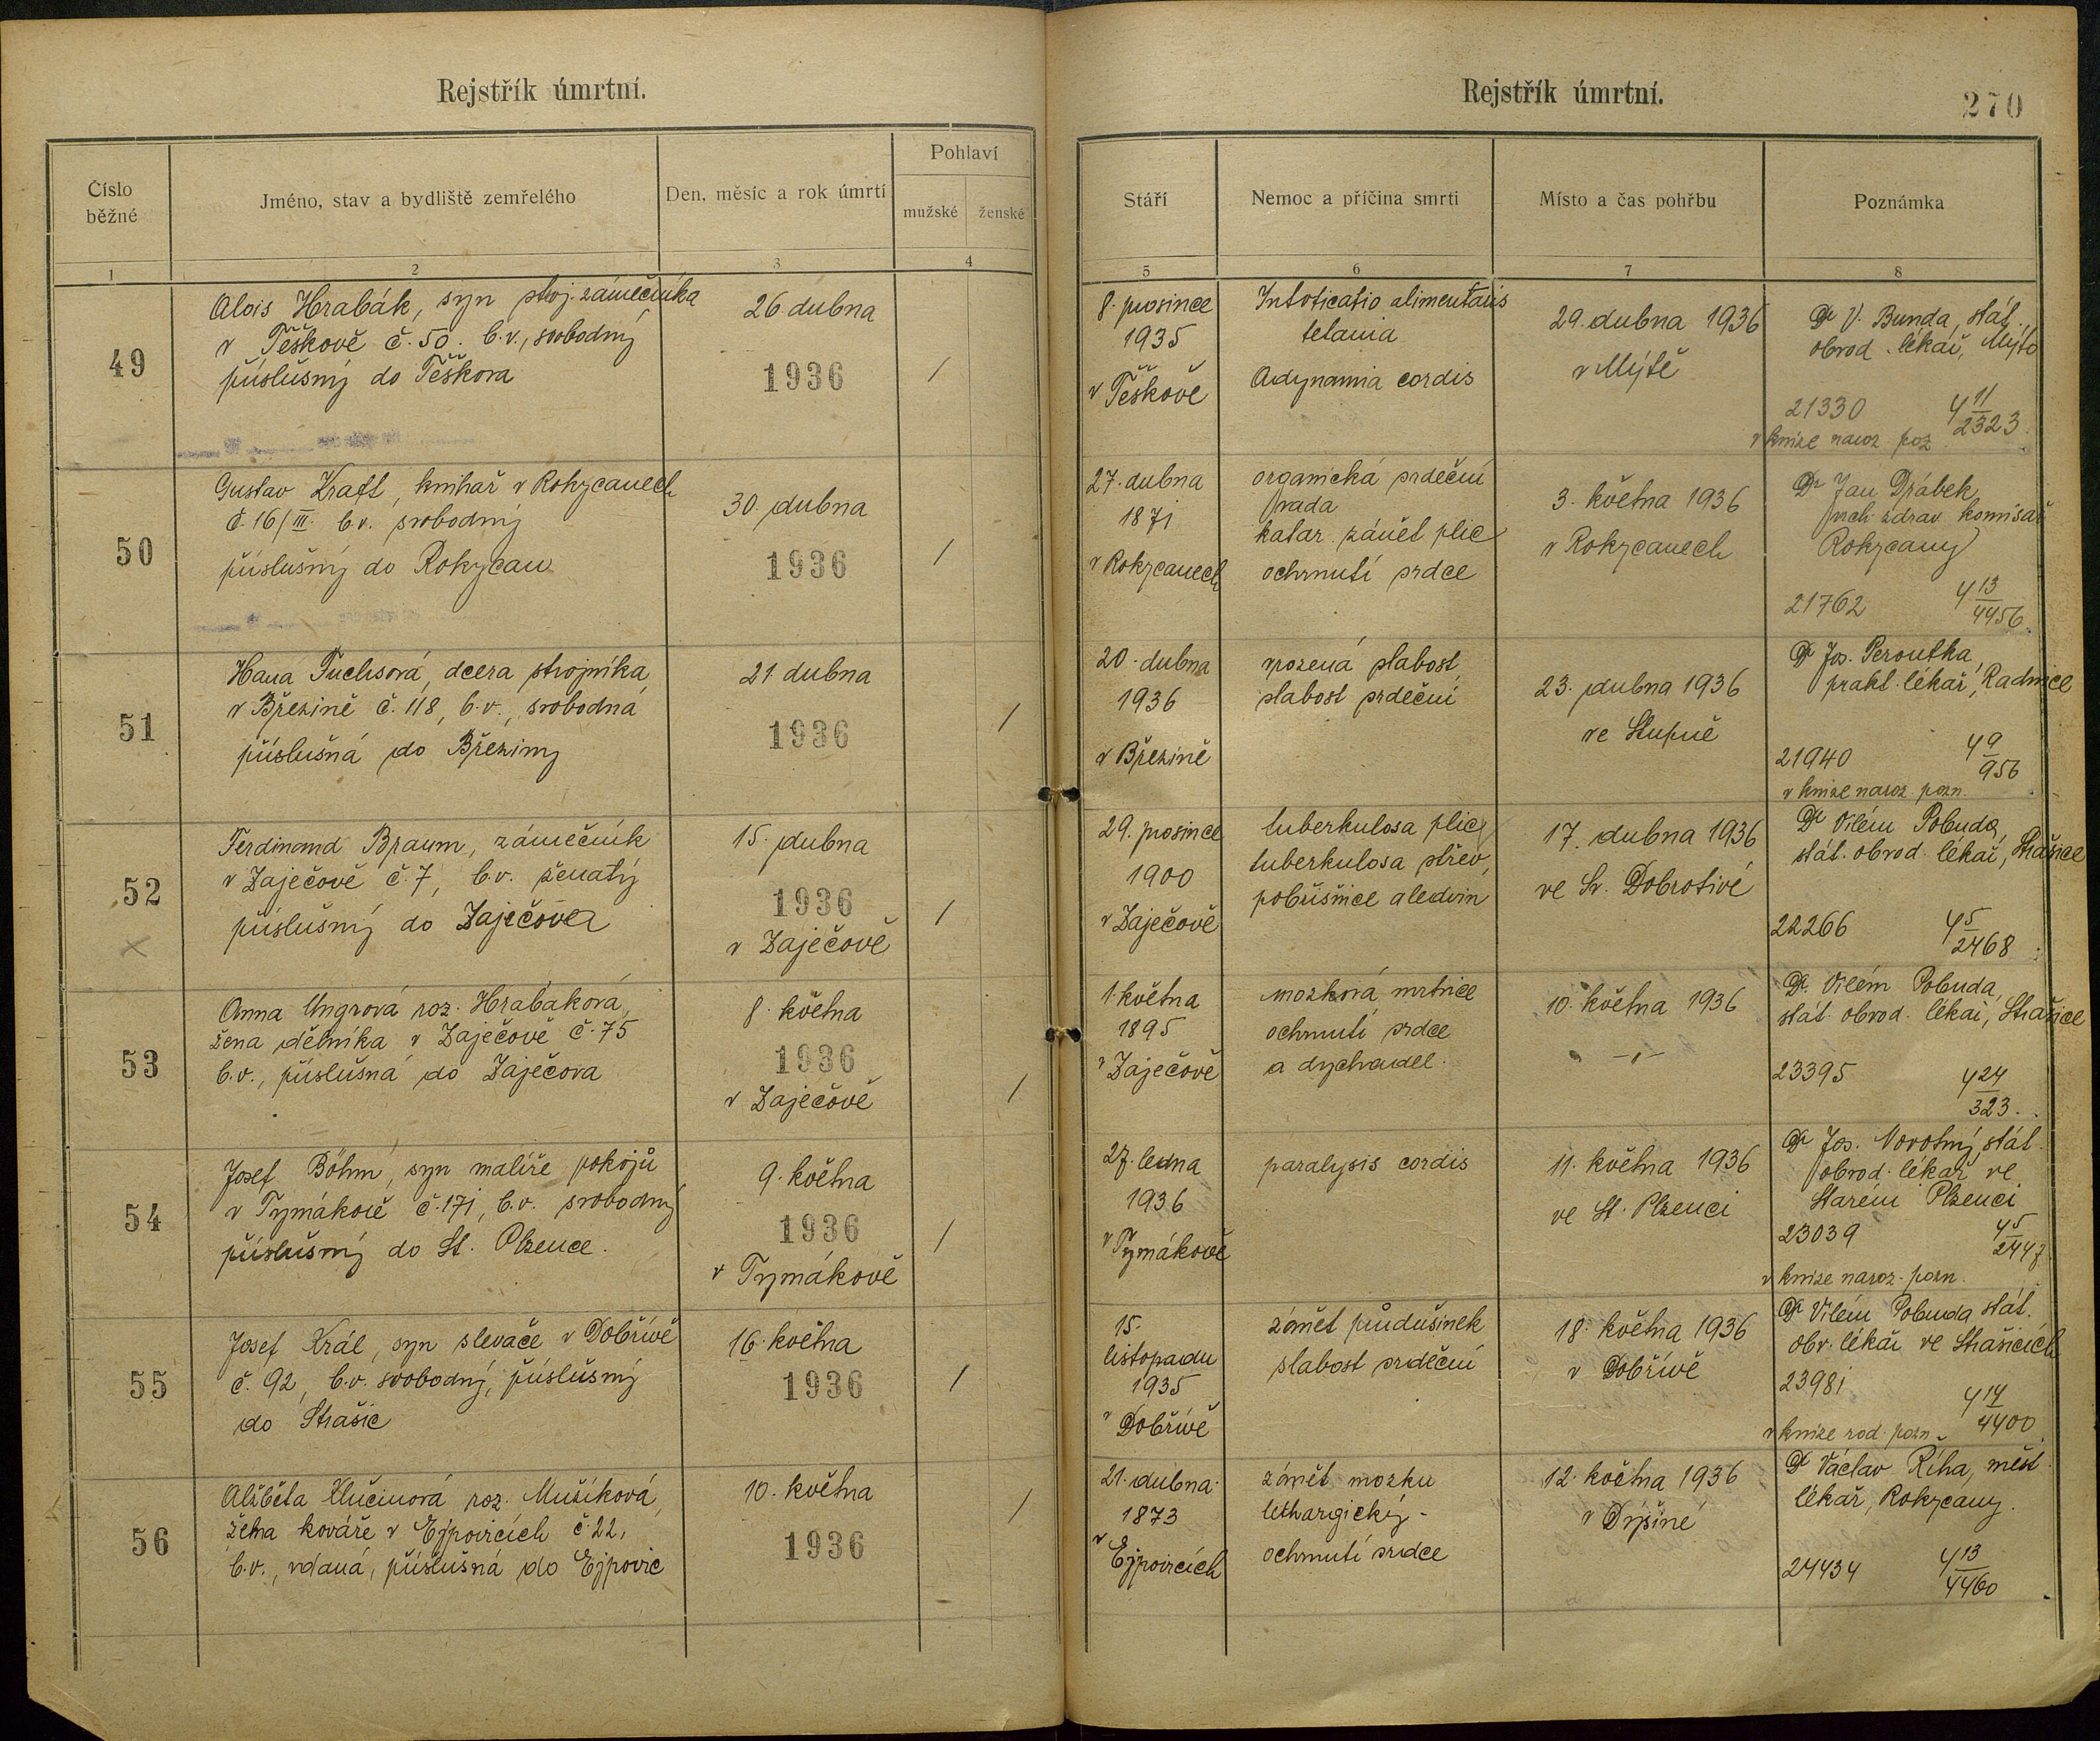 Rejstřík úmrtní.
Číslo běžné
Jméno, stav a bydliště zemřelého
Den, měsíc a rok úmrtí
Pohlaví
mužské
ženské
1
2
3
4
49
Alois Hrabák, syn stroj. zámečníka
v Těškově č. 50. b.v., svobodný
příslušný do Těškova
26 dubna
1936
/
50
Gustav Kraft, knihař v Rokycanech
č. 16/III. b.v. svobodný
příslušný do Rokycan
30. dubna
1936
/
51
Hana Fuchsová, dcera strojníka
v Březině č. 118, b.v., svobodná
příslušná do Březiny
21. dubna
1936
/
52
Ferdinand Braum, zámečník
v Zaječově č. 7, b.v. ženatý
příslušný do Zaječova
15. dubna
1936
v Zaječově
/
53
Anna Ungrová roz. Hrabáková,
žena dělníka v Zaječově č. 75
b.v., příslušná do Zaječova
8. května
1936
v Zaječově
/
54
Josef Böhm, syn malíře pokojů
v Tymákově č. 171, b.v. svobodný
příslušný do St. Plzence.
9. května
1936
v Tymákově
/
55
Josef Král, syn slevače v Dobřívě
č. 92, b.v. svobodný, příslušný
do Strašic
16. května
1936
/
56
Alžběta Klučinová roz. Mužíková,
žena kováře v Ejpovicích č. 22,
b.v., vdaná, příslušná do Ejpovic
10. května
1936
/
Rejstřík úmrtní.
270
Stáří
Nemoc a příčina smrti
Místo a čas pohřbu
Poznámka
5
6
7
8
8. prosince
1935
v Těškově
Intoticatio alimentaris
tetania
Adynamia cordis
29. dubna 1936
v Mýtě
Dr V. Bunda, stát.
obvod. lékař, Mýto
21330
4 11/2323
v knize naroz poz
27. dubna
1871
v Rokycanech
organická srdeční
vada
katar. zánět plic
ochrnutí srdce
3. května 1936
v Rokycanech
Dr Jan Drábek
vrch. zdrav. komisař
Rokycany
21762
4 13/4456.
20. dubna
1936
v Březině
vrozená slabost,
slabost srdeční
23. dubna 1936
ve Stupně
Dr Jos. Peroutka,
prakt. lékař, Radnice
21940
4 9/956
v knize naroz. pozn.
29. prosince
1900
v Zaječově
tuberkulosa plic,
tuberkulosa střev,
pobřišnice a ledvin
17. dubna 1936
ve Sv. Dobrotivé
Dr Vilém Pobuda,
stát. obvod. lékař, Strašice
22266
4 5/2468
1. května
1895
v Zaječově
mozková mrtvice
ochrnutí srdce
a dychadel.
10. května 1936
-"-
Dr. Vilém Pobuda,
stát. obvod. lékař, Strašice
23395
4 24/323.
27. ledna
1936
v Tymákově
paralysis cordis
11. května 1936
ve St. Plzenci
Dr Jos. Novotný stát.
obvod. lékař ve
Starém Plzenci
23039
4 5/2447
v knize naroz. pozn.
15.
listopadu
1935
v Dobřívě
zánět průdušinek
slabost srdeční
18. května 1936
v Dobřívě
Dr Vilém Pobuda stát.
obv. lékař ve Strašicích
23981
4 14/4400
v knize rod. pozn.
21. dubna.
1873
v Ejpovicích
zánět mozku
lethargický -
ochrnutí srdce
12. května 1936
v Dýšině
Dr Václav Říha, měst.
lékař, Rokycany.
24434
4 13/4460